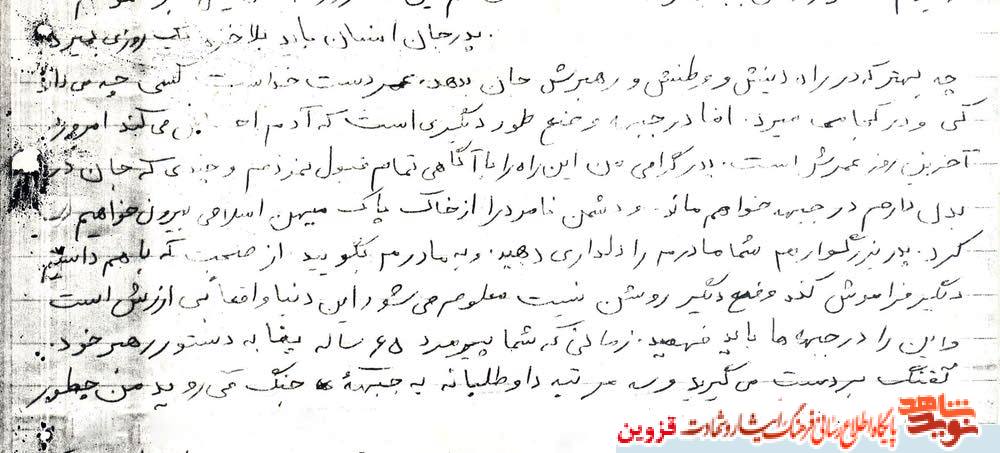 پدرجان انسان باید بلاخره یک روزی بمیرد.
چه بهتر که در راه دینش و وطنش و رهبرش جان بدهد. عمر دست خداست کسی چه می داند
کی و در کجا می میرد. اما در جبهه وضع طور دیگری است که آدم می کند امروز
آخرین روز عمرش است. پدر گرامی من این راه را با آگاهی تمام قبول نمودم و که جان در
بدل دارم در جبهه خواهم ماند. و دشمن نامرد را از خاک پاک میهن اسلامی بیرون خواهیم
کرد. پدر بزرگوارم شما مادرم را دلداری دهید. و به مادرم بگویید از صحبت که با هم داشتیم
دیگر فراموش کند وضع دیگر روشن نیست معلوم می شود این دنیا واقعاً بی ارزش است
و این را در جبهه ها باید فهمید. زمانی که شما پیرمرد ۶۵ ساله بنا به دستور رهبر خود
تفنگ بردست می گیرید و سه مرتبه داوطلبانه به جبهه جنگ می روید من چطور
نوید شاهد
پایگاه اطلاع رسانی فرهنگ ایثار و شهادت قزوین